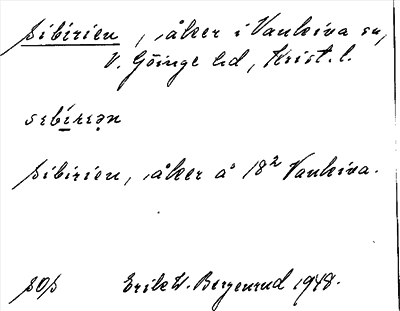 Sibirien, åker i Vankiva sn,
V. Göinge hd, Krist. l.
Sibirien, åker å 18² Vankiva.
SOS Erik W. Bergenrud 1948.